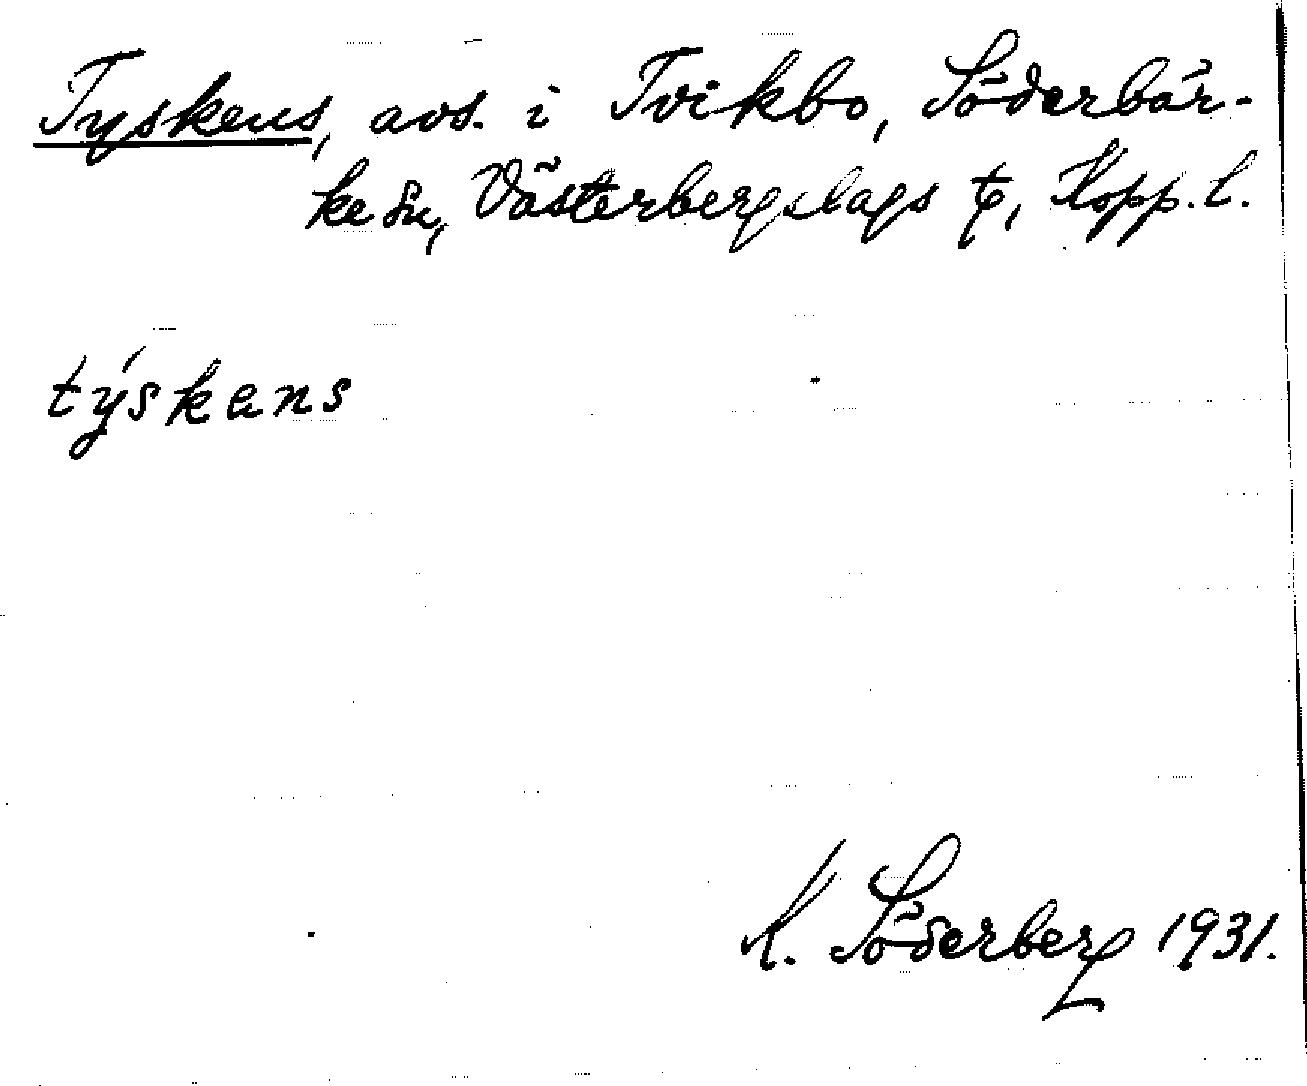 Tyskens, avs. i Tvikbo, Söderbär-
ke sn, Västerbergslags tg, Kopp. l.
týskens
K. Söderberg 1931.